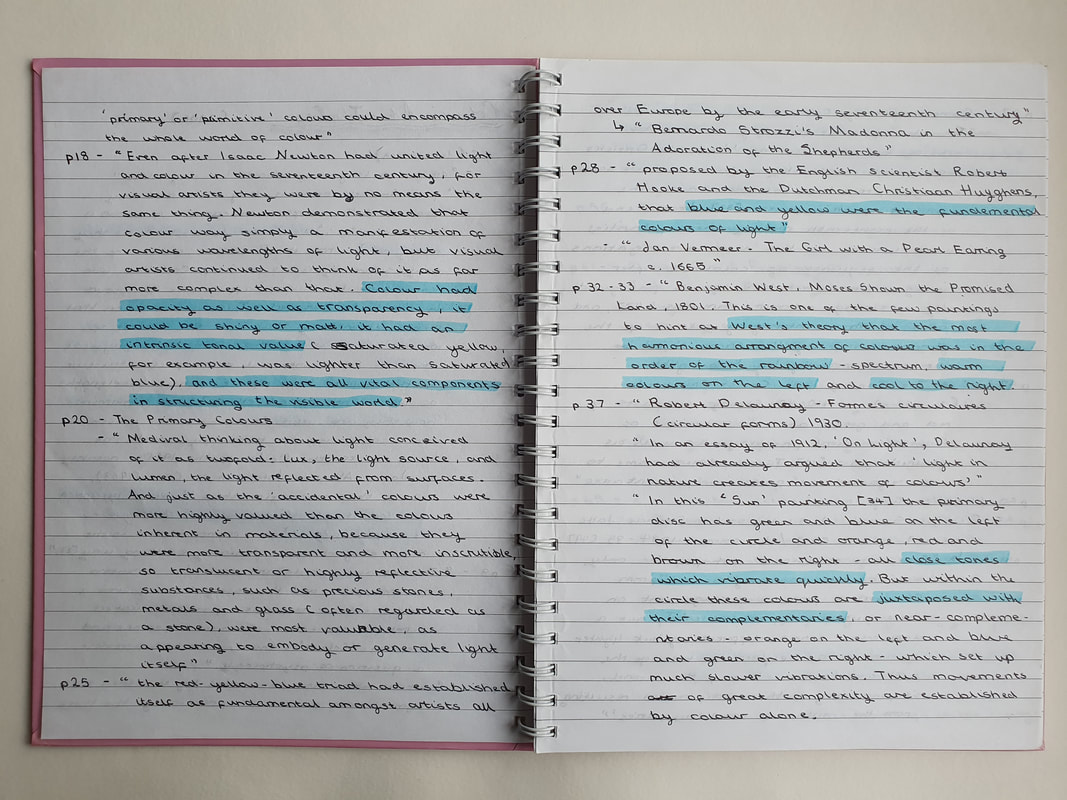 'primary' or 'primitive' colours could encompass
the whole world of colour"
p18 - "Even after Isaac Newton had united light
and colour in the seventeenth century, for
visual artists they were by no means the
same thing. Newton demonstrated that
colour way simply a manifestation of
various wavelengths of light, but visual
artists continued to think of it as far
more complex than that. Colour had
opacity as well as transparency, it
could be shiny or matt, it had an
intrinsic tonal value (saturated yellow,
for example, was lighter than saturated
blue), and these were all vital components
in structuring the visible world."
p20 - The Primary Colours
- "Medival thinking about light conceived
of it as twofold: Lux, the light source, and
Lumen, the light reflected from surfaces.
And just as the 'accidental' colours were
more highly valued than the colours
inherent in materials, because they
were more transparent and more inscrutible,
so translucent or highly reflective
substances, such as precious stones,
metals and glass (often regarded as
a stone), were most valuable, as
appearing to embody or generate light
itself"
p25 - "the red-yellow-blue triad had established
itself as fundamental amongst artists all
over Europe by the early seventeenth century"
↳ "Bernardo Strozzi's Madonna in the
Adoration of the Shepherds"
p28 - "proposed by the English scientist Robert
Hooke and the Dutchman Christiaan Huyghens,
that blue and yellow were the fundemental
colours of light"
- "Jan Vermeer - The Girl with a Pearl Earring
c. 1665"
p32-33 - "Benjamin West, Moses Shown the Promised
Land, 1801. This is one of the few paintings
to hint at West's theory that the most
harmonious arrangment of colours was in the
order of the rainbow - spectrum, warm
colours on the left and cool to the right.
p37 - "Robert Delaunay - Formes circulaires
(circular forms) 1930.
"In an essay of 1912, 'On Light', Delaunay
had already argued that 'light in
nature creates movement of colours'"
"In this 'Sun' painting [34] the primary
disc has green and blue on the left
of the circle and orange, red and
brown on the right - all close tones
which vibrate quickly. But within the
circle these colours are juxtaposed with
their complementaries, or near-compleme-
ntaries - orange on the left and blue
and green on the right - which set up
much slower vibrations. Thus movements
of great complexity are established
by colour alone.